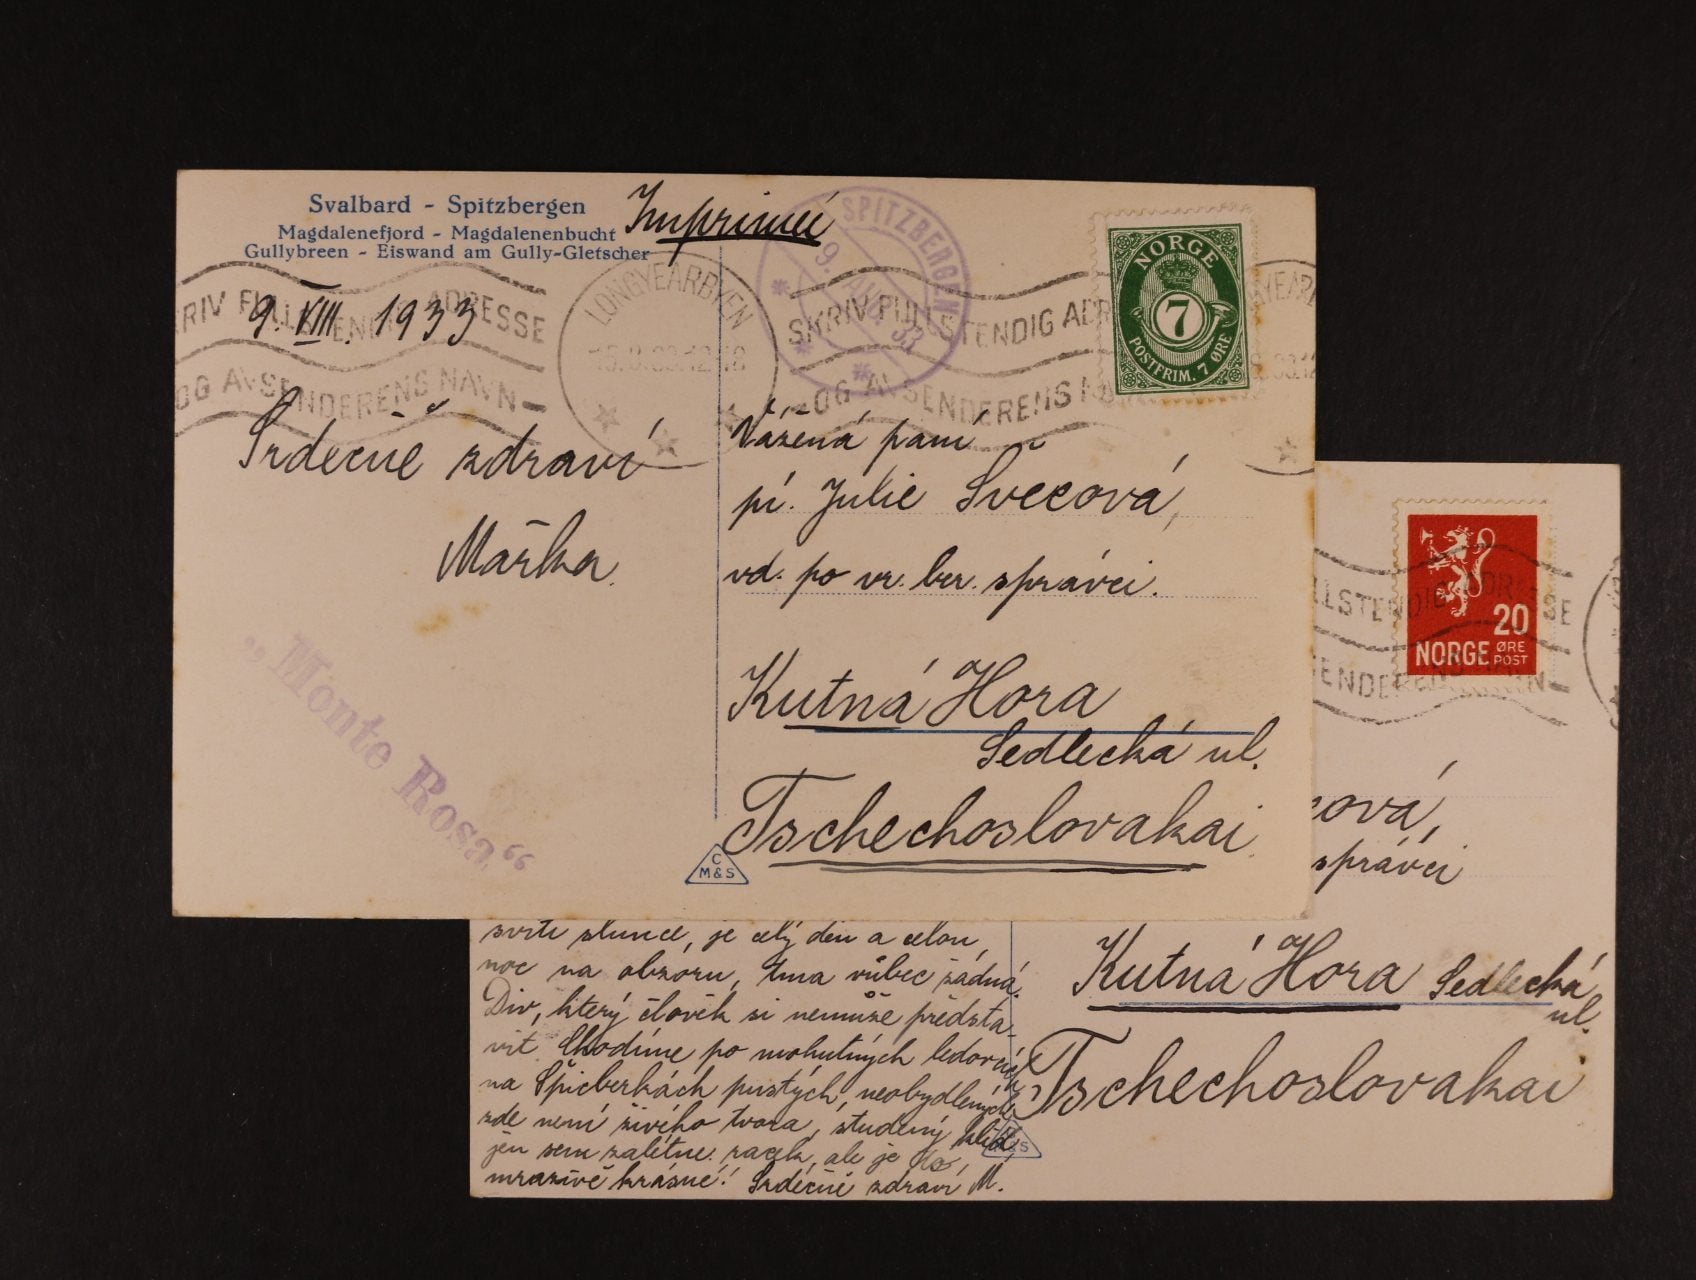 Svalbard - Spitzbergen
Magdalenefjord - Magdalenenbucht
Gullybreen - Eiswand am Gully-Gletscher
Imprimé
9. VIII. 1933
Srdečně zdraví
Mařka.
„Monte Rosa“
SPITZBERGEN
9. AUG. 33
LONGYEARBYEN
SKRIV FULLSTENDIG ADRESSE
OG AVSENDERENS NAVN
SKRIV FULLSTENDIG ADR
OG AVSENDERENS N
YEARB
NORGE
7
POSTFRIM. 7 ØRE
Vážená paní
pí. Julie Švecová,
vd. po vr. ber. správci.
Kutná Hora
Sedlecká ul.
Tschechoslovakai
C
M&S
LLSTENDIG ADRESSE
ENDERENS NAVN
20
NORGE ØRE
POST
cová,
správci
Kutná Hora Sedlecká
ul.
Tschechoslovakai
svítí slunce, je celý den a celou
noc na obzoru, tma vůbec žádná.
Div, který člověk si nemůže předsta-
vit. Chodíme po mohutných ledovcích
na Špicberkách pustých, neobydlených,
zde není živého tvora, studený klid,
jen sem zalétne racek, ale je to
mrazivě krásné! Srdečně zdraví M.